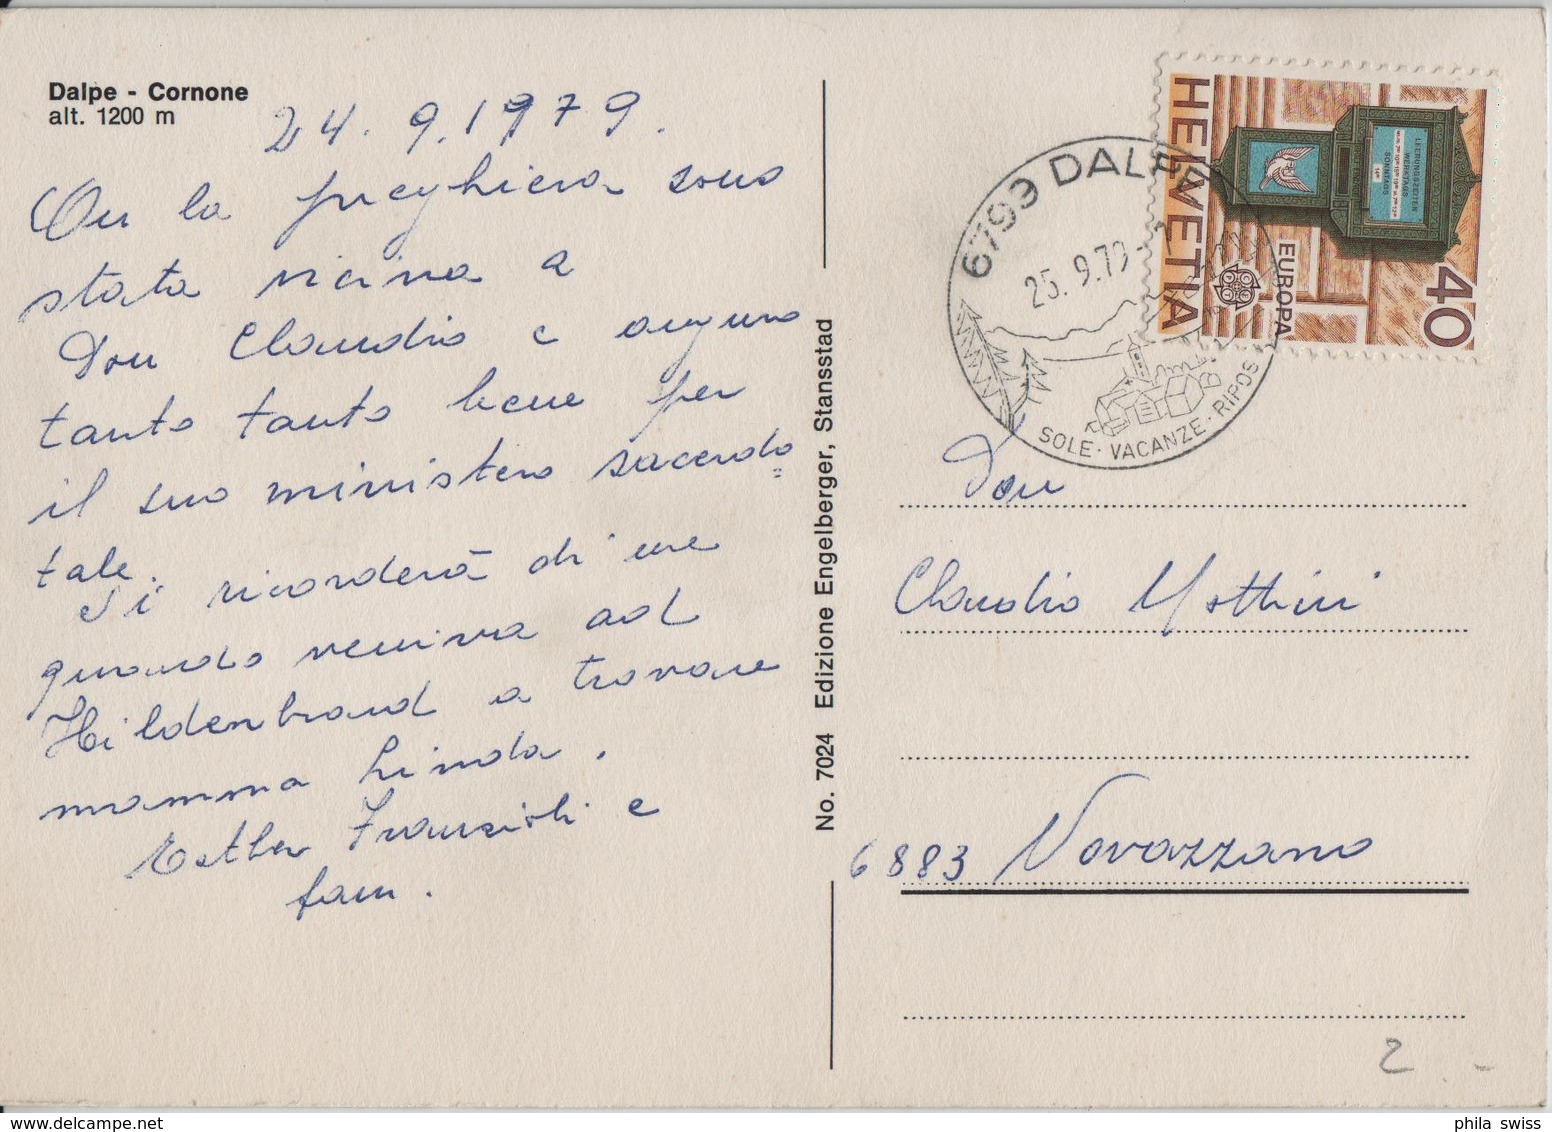 Dalpe - Cornone
alt. 1200 m
24. 9. 1979.
la preghiera sono
stata vicina a
Don Claudio e auguro
tanto tanto bene per
il suo ministero sacerdo=
tale.
Si ricorderà di me
quando veniva ad
Hildenbrand a trovare
mamma Linda.
Esther Franscioli e
fam.
No. 7024 Edizione Engelberger, Stansstad
6793 DALPE
25. 9. 79
SOLE · VACANZE · RIPOSO
HELVETIA
EUROPA
40
LEERUNGSZEITEN
WERKTAGS
SONNTAGS
Don
Claudio Mottini
6883 Novazzano
2 -
phila swiss